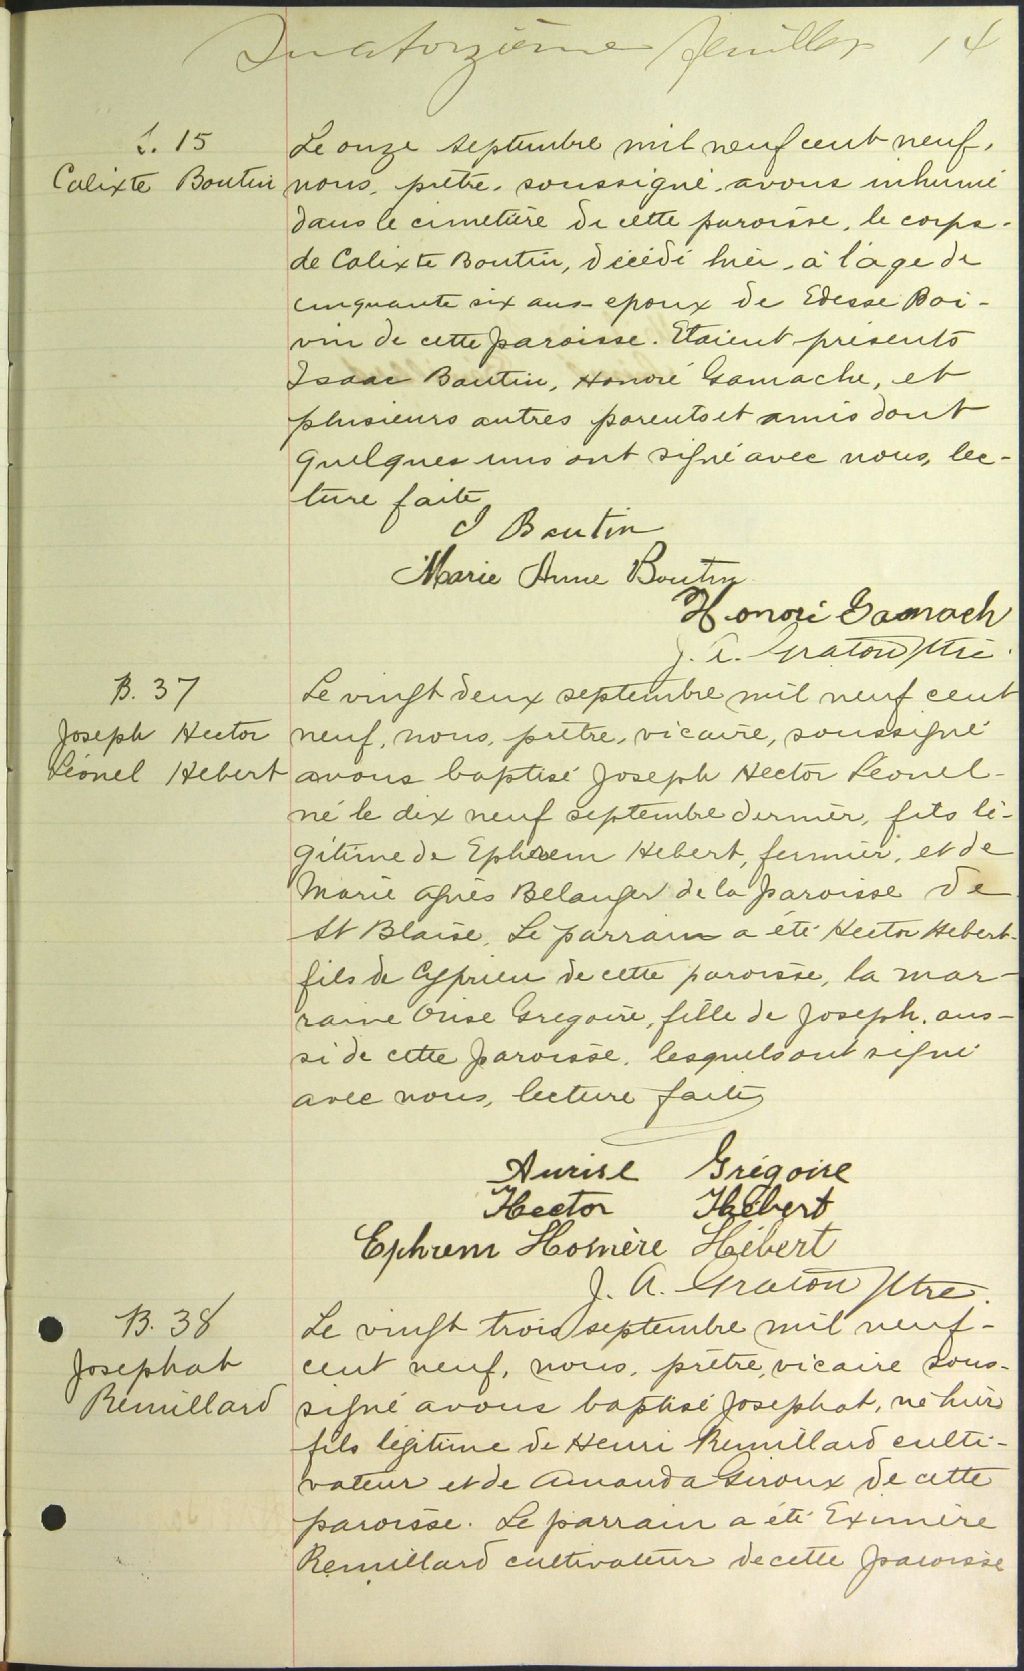 Quatorzième feuillet 14
S. 15
Calixte Boutin
Le onze septembre mil neuf cent neuf,
nous, prêtre, soussigné, avons inhumé
dans le cimetière de cette paroisse, le corps
de Calixte Boutin, décédé hier, à l'age de
cinquante six ans epoux de Edesse Boi-
vin de cette paroisse. Etaient présents
Isaac Boutin, Honoré Gamache, et
plusieurs autres parents et amis dont
quelques uns ont signé avec nous, lec-
ture faite
I Boutin
Marie Anne Boutin
Honoré Gamach
J. A. Graton Ptre.
B. 37
Joseph Hector
Léonel Hebert
Le vingt deux septembre mil neuf cent
neuf, nous, prêtre, vicaire, soussigné
avons baptisé Joseph Hector Léonel-
né le dix neuf septembre dernier, fils lé-
gitime de Ephrem Hebert, fermier, et de
Marie Agnès Belanger de la paroisse de
St Blaise. Le parrain a été Hector Hebert-
fils de Cyprien de cette paroisse, la mar-
raine Orise Gregoire, fille de Joseph, aus-
si de cette paroisse, lesquels ont signé
avec nous, lecture faite
Aurise Grégoire
Hector Hébert
Ephrem Homère Hébert
J. A. Graton Ptre.
B. 38
Josephat
Remillard
Le vingt trois septembre mil neuf-
cent neuf, nous, prêtre, vicaire sous-
signé avons baptisé Josephat, né hier
fils légitime de Henri Remillard culti-
vateur et de Amanda Giroux de cette
paroisse. Le parrain a été Eximère
Remillard cultivateur de cette paroisse